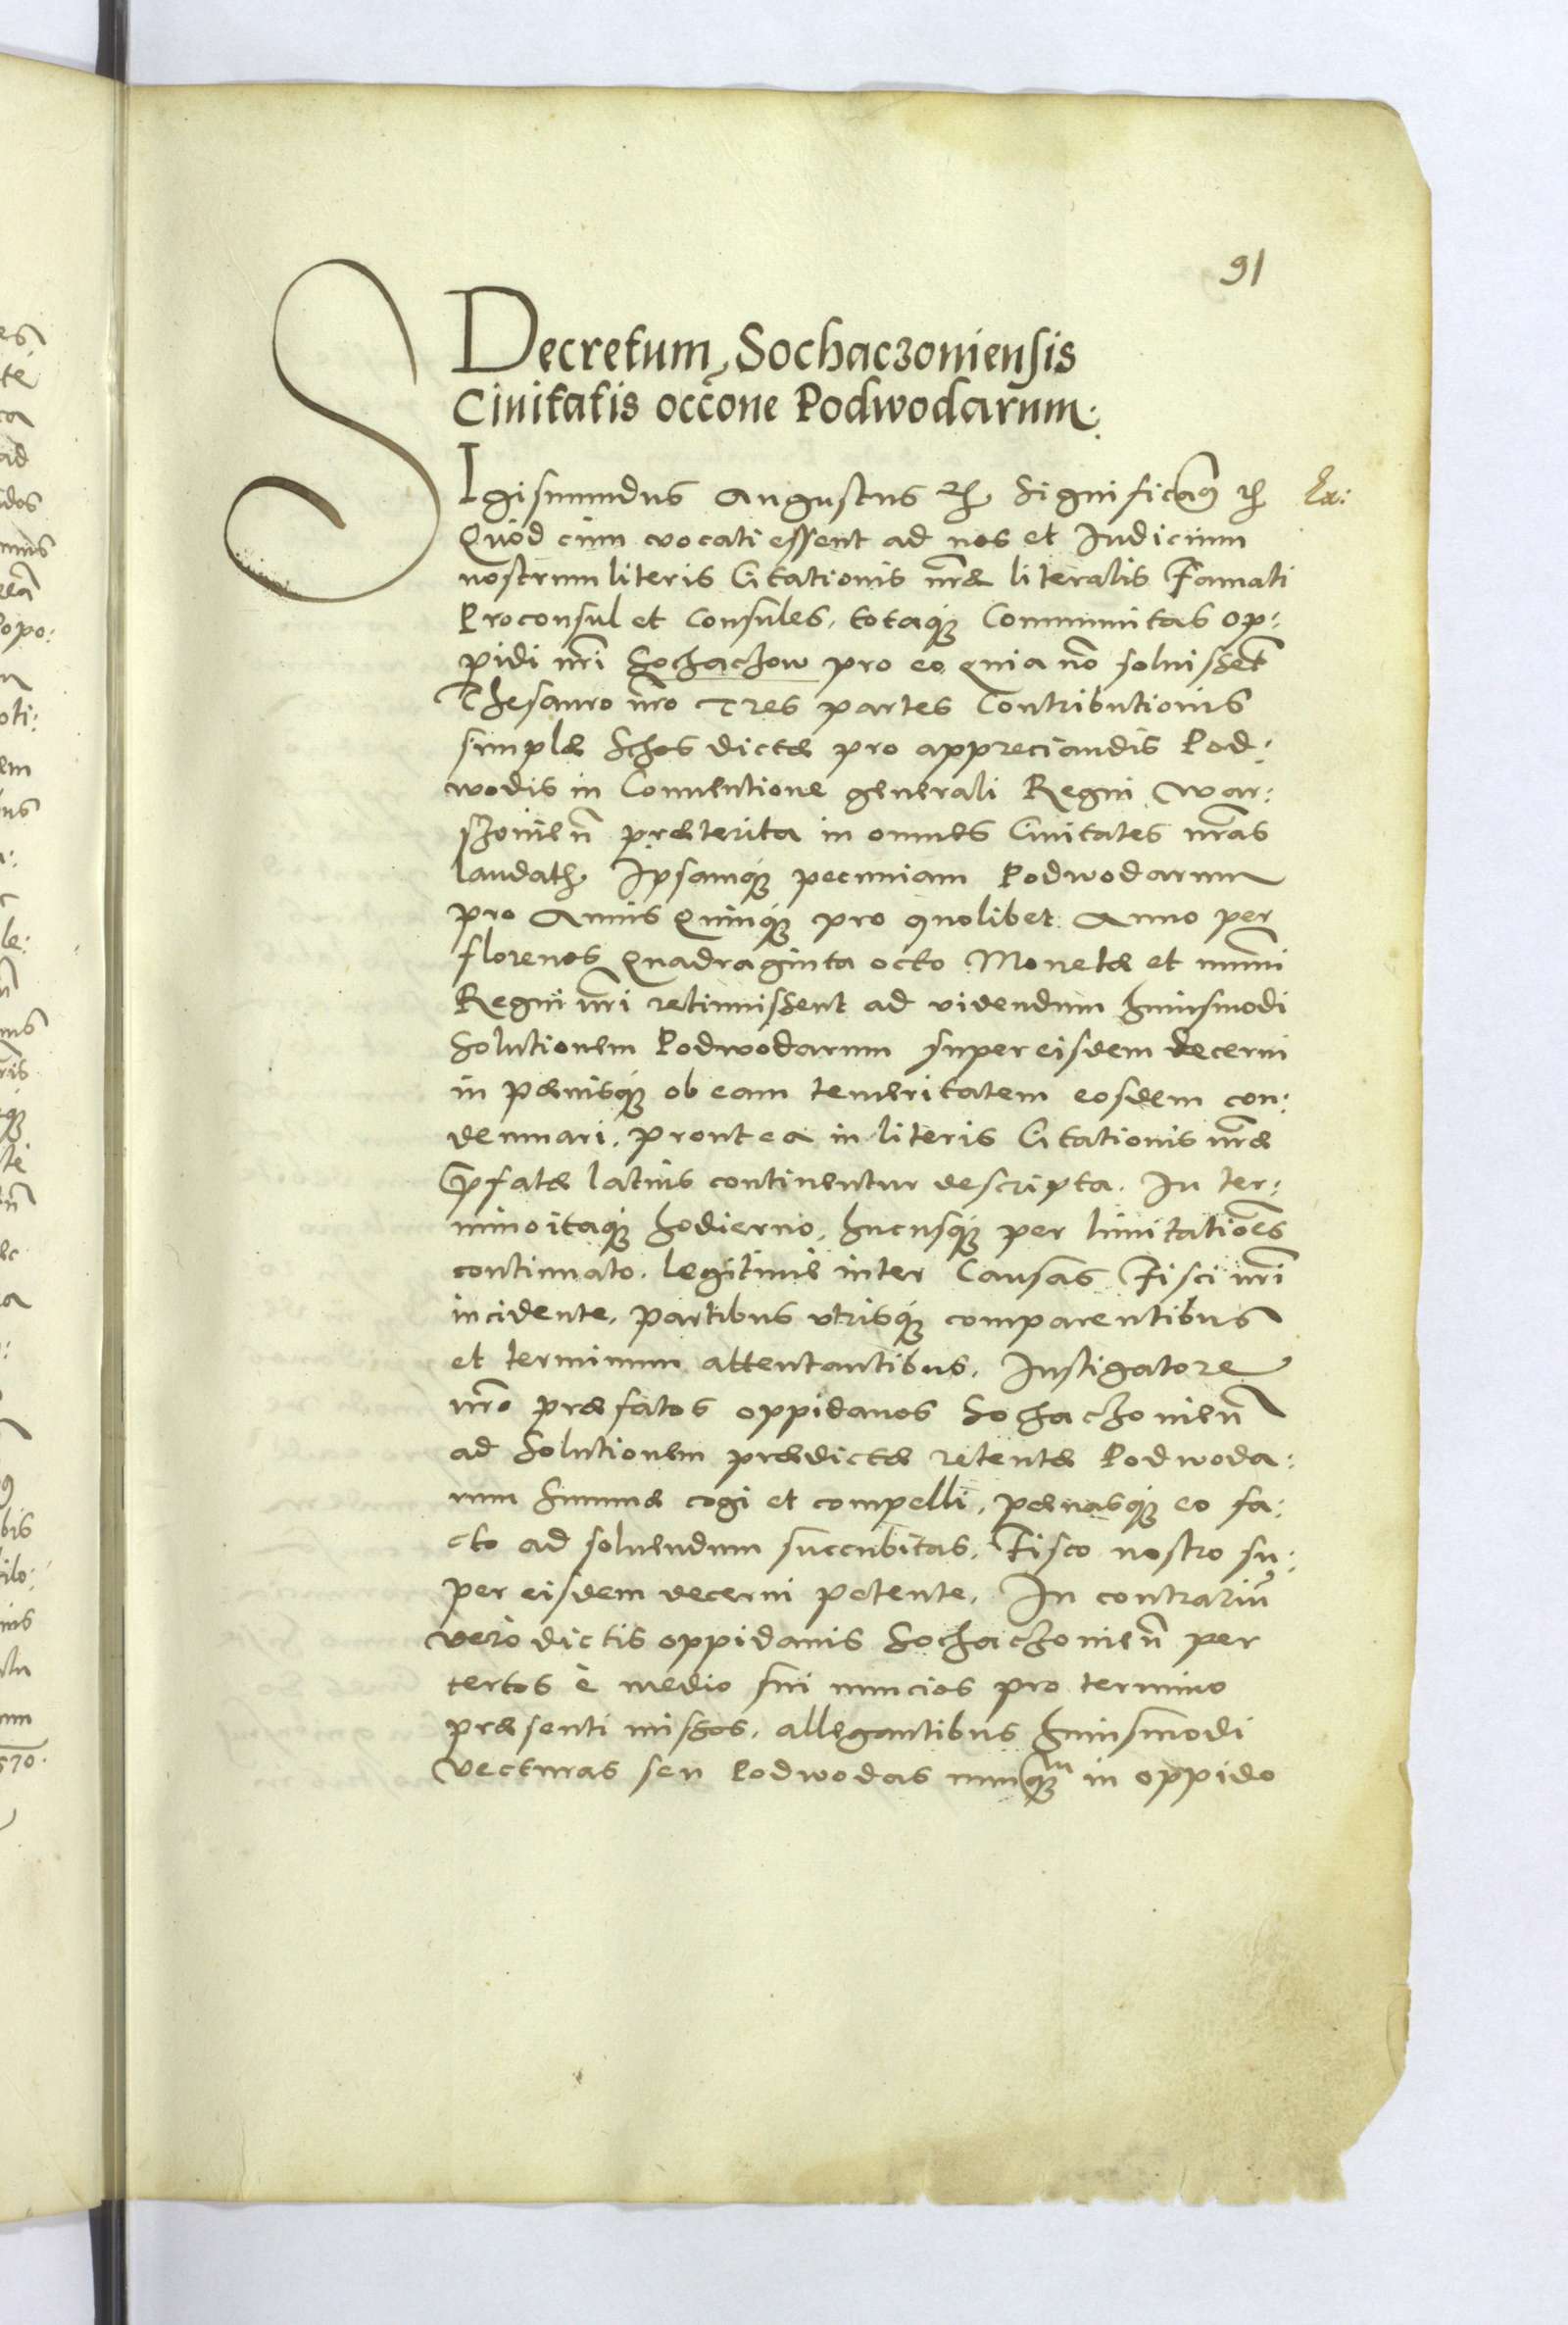 91
Decretum Sochaczoniensis
Ciuitatis occone Podwodarum.
SIgismundus Augustus etc. Significamus etc. Ex:
Quod cum vocati essent ad nos et Iudicium
nostrum literis Citationis nrae literalis Famati
Proconsul et Consules, totaque Communitas op:
pidi nri Sochaczow pro eo quia no soluissent
Thesauro nro Tres partes Contributionis
simplae Schos dictae pro appreciandis Pod:
wodis in Conuentione generali Regni War:
szouien praeterita in omnes Ciuitates nras
laudath. Ipsamque pecuniam Podwodarum
pro Annis Quinque pro quolibet Anno per
florenos Quadraginta octo Monetae et numi
Regni nri retinuissent ad videndum huiusmodi
Solutionem Podwodarum super eisdem decerni
in paenisque ob eam temeritatem eosdem con:
demnari, prout ea in literis Citationis nrae
Prfatae latius continentur descripta. In ter:
mino itaque hodierno, hucusque per limitationes
continuato, legitime inter Causas Fisci nri
incidente, partibus vtrisque comparentibus
et terminum attentantibus, Instigatore
nro praefatos oppidanos Sochaczouien
ad Solutionem praedictae retentae Podwoda:
rum Summae cogi et compelli, paenasque eo fa:
cto ad soluendum succubitas, Fisco nostro su:
per eisdem decerni petente, In contrariu
vero dictis oppidanis Sochaczouien per
certos è medio sui nuncios pro termino
praesenti missos, allegantibus huiusmodi
Vecturas seu Podwodas nunquam in oppido